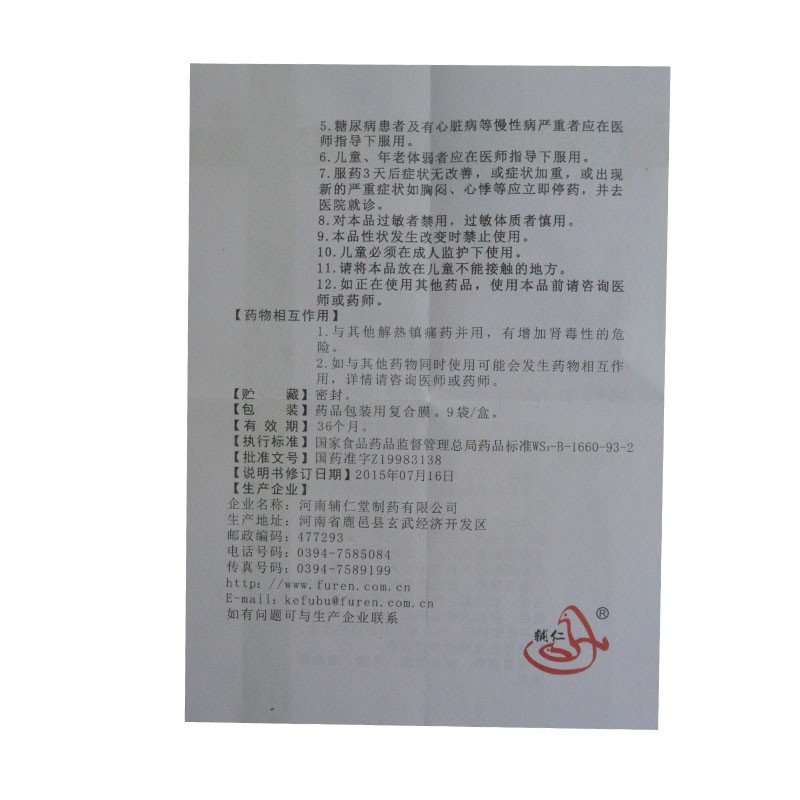 5.糖尿病患者及有心脏病等慢性病严重者应在医
师指导下服用。
6.儿童、年老体弱者应在医师指导下服用。
7.服药3天后症状无改善，或症状加重，或出现
新的严重症状如胸闷、心悸等应立即停药，并去
医院就诊。
8.对本品过敏者禁用，过敏体质者慎用。
9.本品性状发生改变时禁止使用。
10.儿童必须在成人监护下使用。
11.请将本品放在儿童不能接触的地方。
12.如正在使用其他药品，使用本品前请咨询医
师或药师。
【药物相互作用】
1.与其他解热镇痛药并用，有增加肾毒性的危
险。
2.如与其他药物同时使用可能会发生药物相互作
用，详情请咨询医师或药师。
【贮 藏】密封。
【包 装】药品包装用复合膜。9袋/盒。
【有 效 期】36个月。
【执行标准】国家食品药品监督管理总局药品标准WS₃-B-1660-93-2
【批准文号】国药准字Z19983138
【说明书修订日期】2015年07月16日
【生产企业】
企业名称：河南辅仁堂制药有限公司
生产地址：河南省鹿邑县玄武经济开发区
邮政编码：477293
电话号码：0394-7585084
传真号码：0394-7589199
http：//www.furen.com.cn
E-mail：kefubu@furen.com.cn
如有问题可与生产企业联系
辅仁®